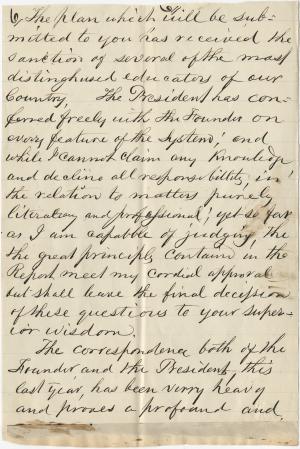 6 The plan which will be sub-
mitted to you has received the
sanction of several of the most
distinghused educators of our
Country. The President has con-
ferred freely with the Founder on
every feature of the System; and
while I cannot claim any Knowledge
and decline all responsibility, in
the relation to matters purely
literary and professional; yet so far
as I am capable of judging, the
the great principles contain in the
Report meet my cordial approval
but shall leave the final decission
of these questions to your super-
ior wisdom.
The correspondence both of the
Founder and the President, this
last year, has been verry heavy
and proves a profound and,